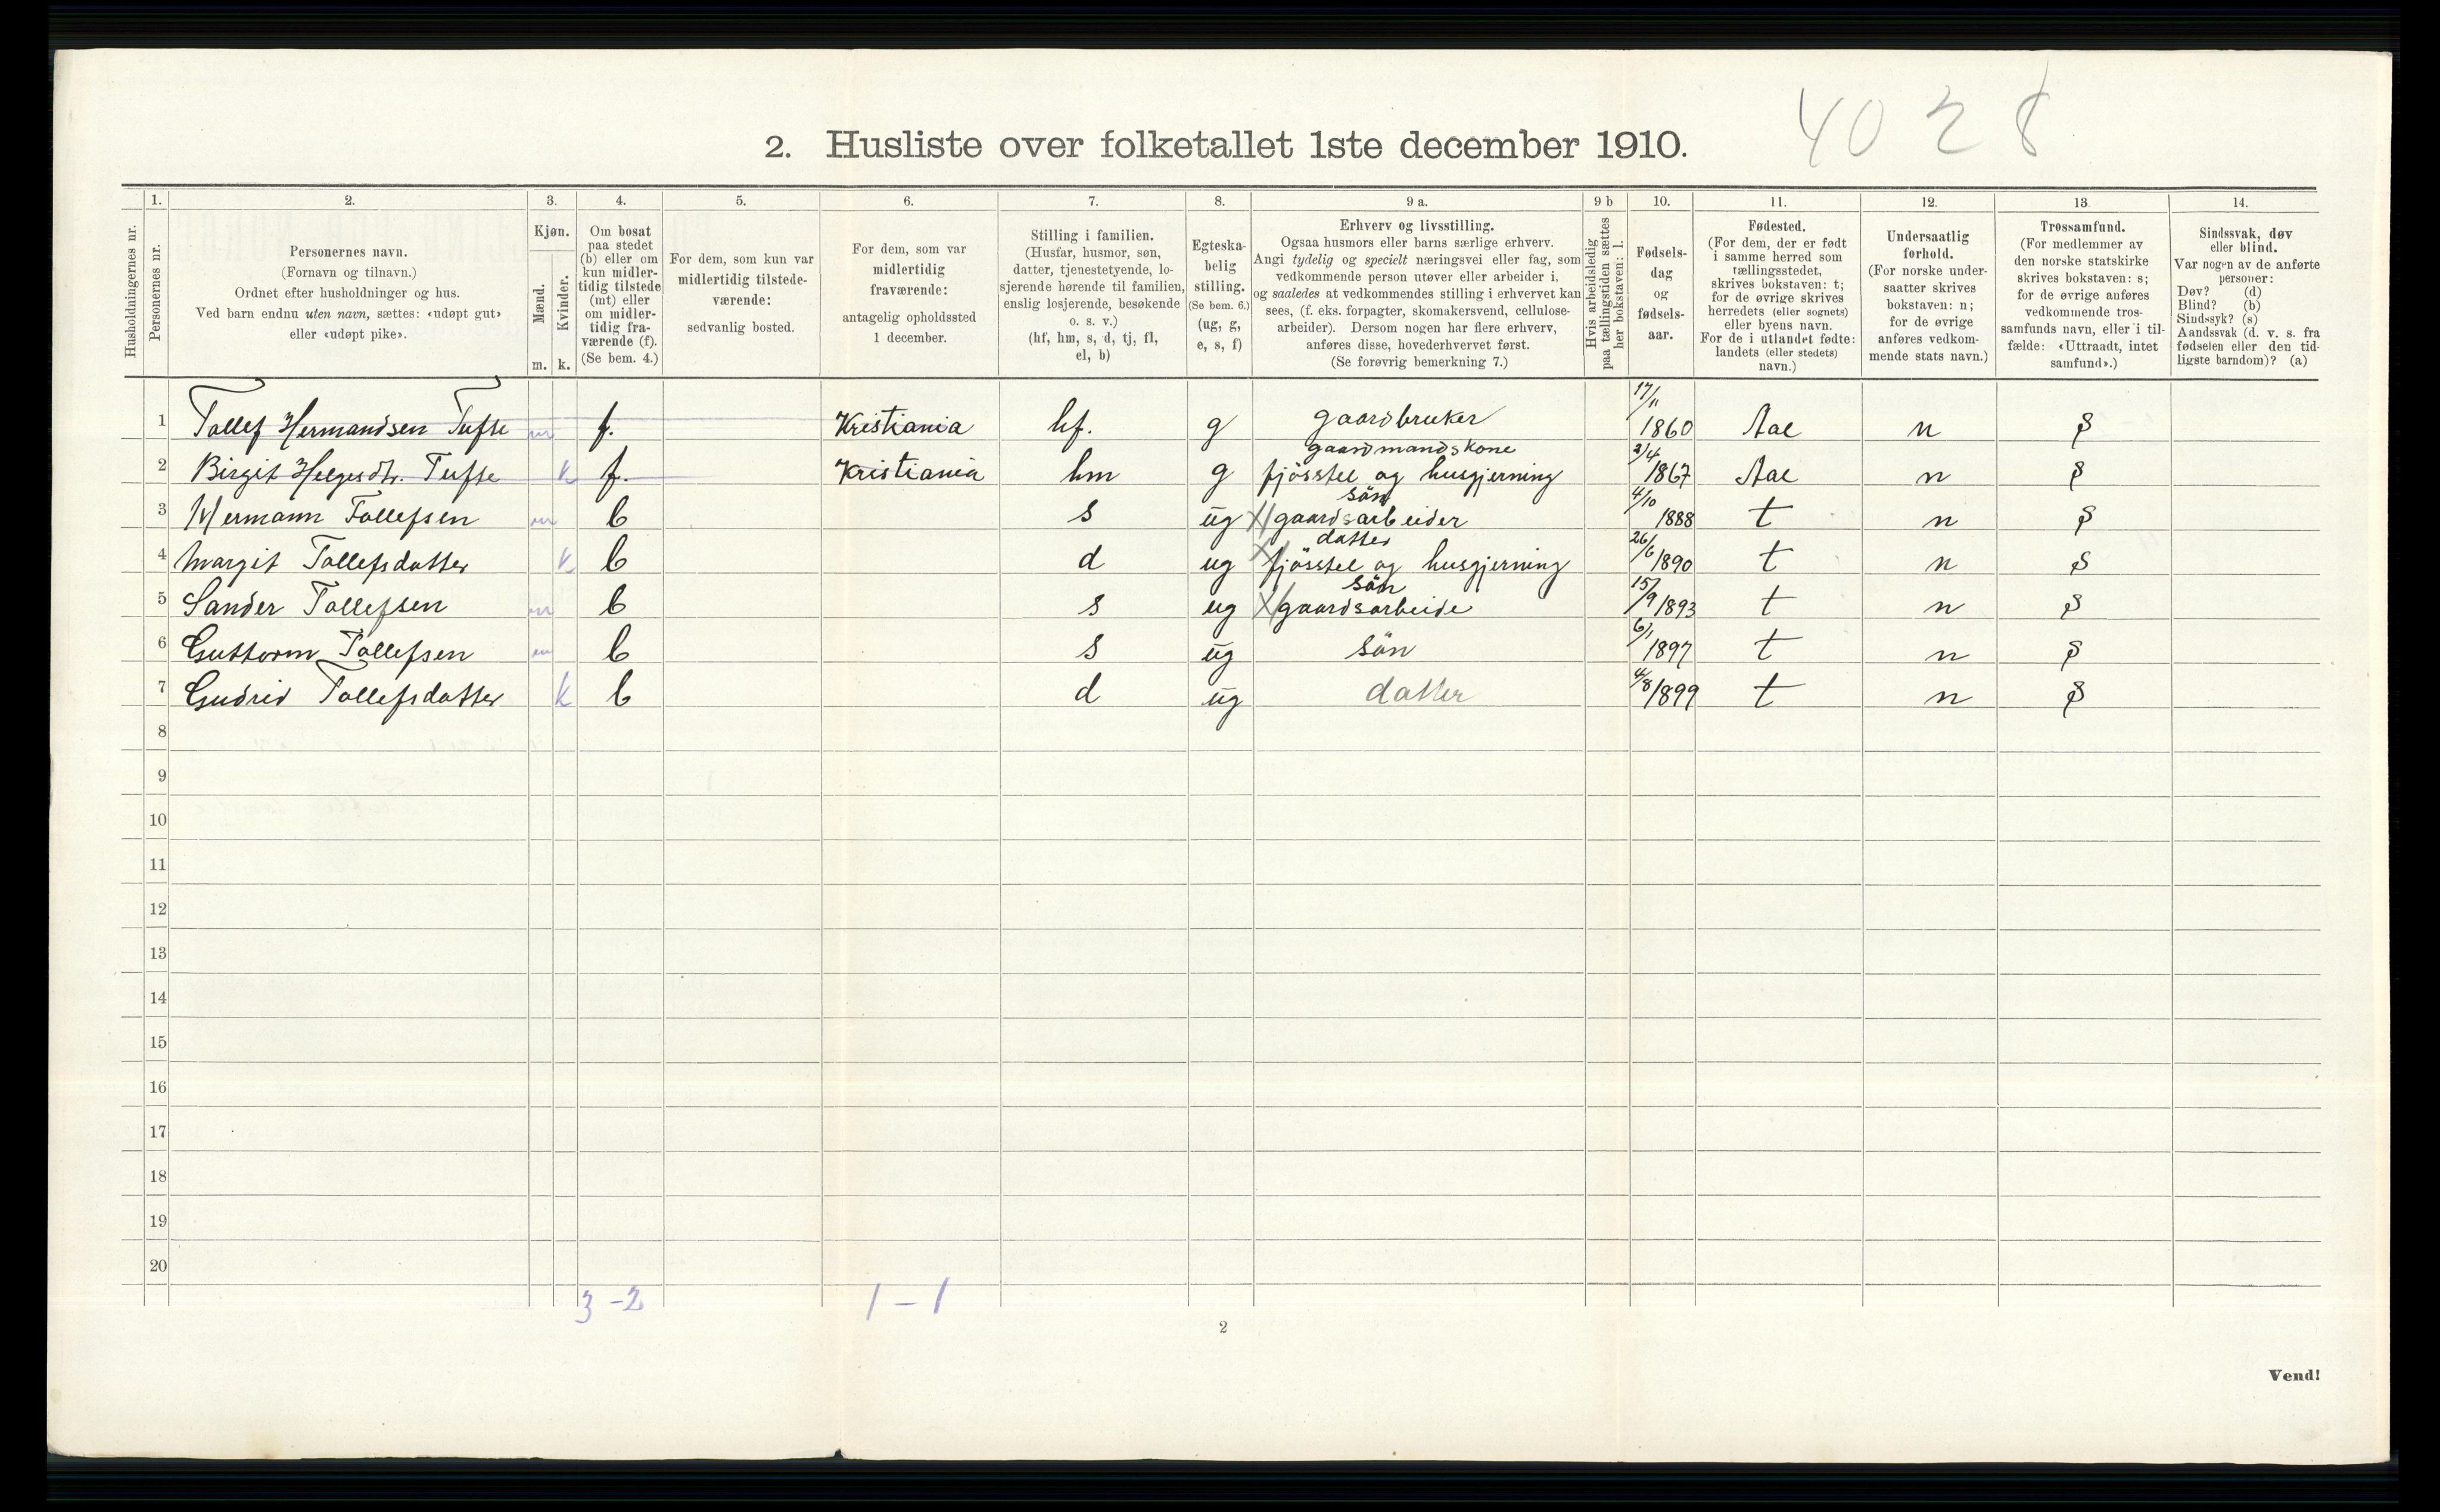 4028
2. Husliste over folketallet 1ste december 1910.
Husholdningernes nr.
1.
Personernes nr.
2.
Personernes navn.
(Fornavn og tilnavn.)
Ordnet efter husholdninger og hus.
Ved barn endnu uten navn, sættes: «udøpt gut»
eller «udøpt pike».
3.
Kjøn.
Mænd.
Kvinder.
m. k.
4.
Om bosat
paa stedet
(b) eller om
kun midler-
tidig tilstede
(mt) eller
om midler-
tidig fra-
værende (f).
(Se bem. 4.)
5.
For dem, som kun var
midlertidig tilstede-
værende:
sedvanlig bosted.
6.
For dem, som var
midlertidig
fraværende:
antagelig opholdssted
1 december.
7.
Stilling i familien.
(Husfar, husmor, søn,
datter, tjenestetyende, lo-
sjerende hørende til familien,
enslig losjerende, besøkende
o. s. v.)
(hf, hm, s, d, tj, fl,
el, b)
8.
Egteska-
belig
stilling.
(Se bem. 6.)
(ug, g,
e, s, f)
9 a.
Erhverv og livsstilling.
Ogsaa husmors eller barns særlige erhverv.
Angi tydelig og specielt næringsvei eller fag, som
vedkommende person utøver eller arbeider i,
og saaledes at vedkommendes stilling i erhvervet kan
sees, (f. eks. forpagter, skomakersvend, cellulose-
arbeider). Dersom nogen har flere erhverv,
anføres disse, hovederhvervet først.
(Se forøvrig bemerkning 7.)
9 b
Hvis arbeidsledig
paa tællingstiden sættes
her bokstaven: l.
10.
Fødsels-
dag
og
fødsels-
aar.
11.
Fødested.
(For dem, der er født
i samme herred som
tællingsstedet,
skrives bokstaven: t;
for de øvrige skrives
herredets (eller sognets)
eller byens navn.
For de i utlandet fødte:
landets (eller stedets)
navn.)
12.
Undersaatlig
forhold.
(For norske under-
saatter skrives
bokstaven: n;
for de øvrige
anføres vedkom-
mende stats navn.)
13.
Trossamfund.
(For medlemmer av
den norske statskirke
skrives bokstaven: s;
for de øvrige anføres
vedkommende tros-
samfunds navn, eller i til-
fælde: «Uttraadt, intet
samfund».)
14.
Sindssvak, døv
eller blind.
Var nogen av de anførte
personer:
Døv? (d)
Blind? (b)
Sindssyk? (s)
Aandssvak (d. v. s. fra
fødselen eller den tid-
ligste barndom)? (a)
1 Tollef Hermandsen Tufte m f. Kristiania hf. g gaardbruker 17/11 1860 Aal n S
2 Birgit Helgesdtr. Tufte k f. Kristiania hm g gaardmandskone fjösstel og husgjerning 2/4 1867 Aal n S
3 Hermann Tollefsen m b s ug sön gaardsarbeider 4/10 1888 t n S
4 Margit Tollefsdatter k b d ug datter fjösstel og husgjerning 26/6 1890 t n S
5 Sander Tollefsen m b s ug sön gaardsarbeide 15/9 1893 t n S
6 Guttorm Tollefsen m b s ug sön 6/1 1897 t n S
7 Gudrid Tollefsdatter k b d ug datter 4/8 1899 t n S
8
9
10
11
12
13
14
15
16
17
18
19
20
3 - 2 1 - 1
2
Vend!